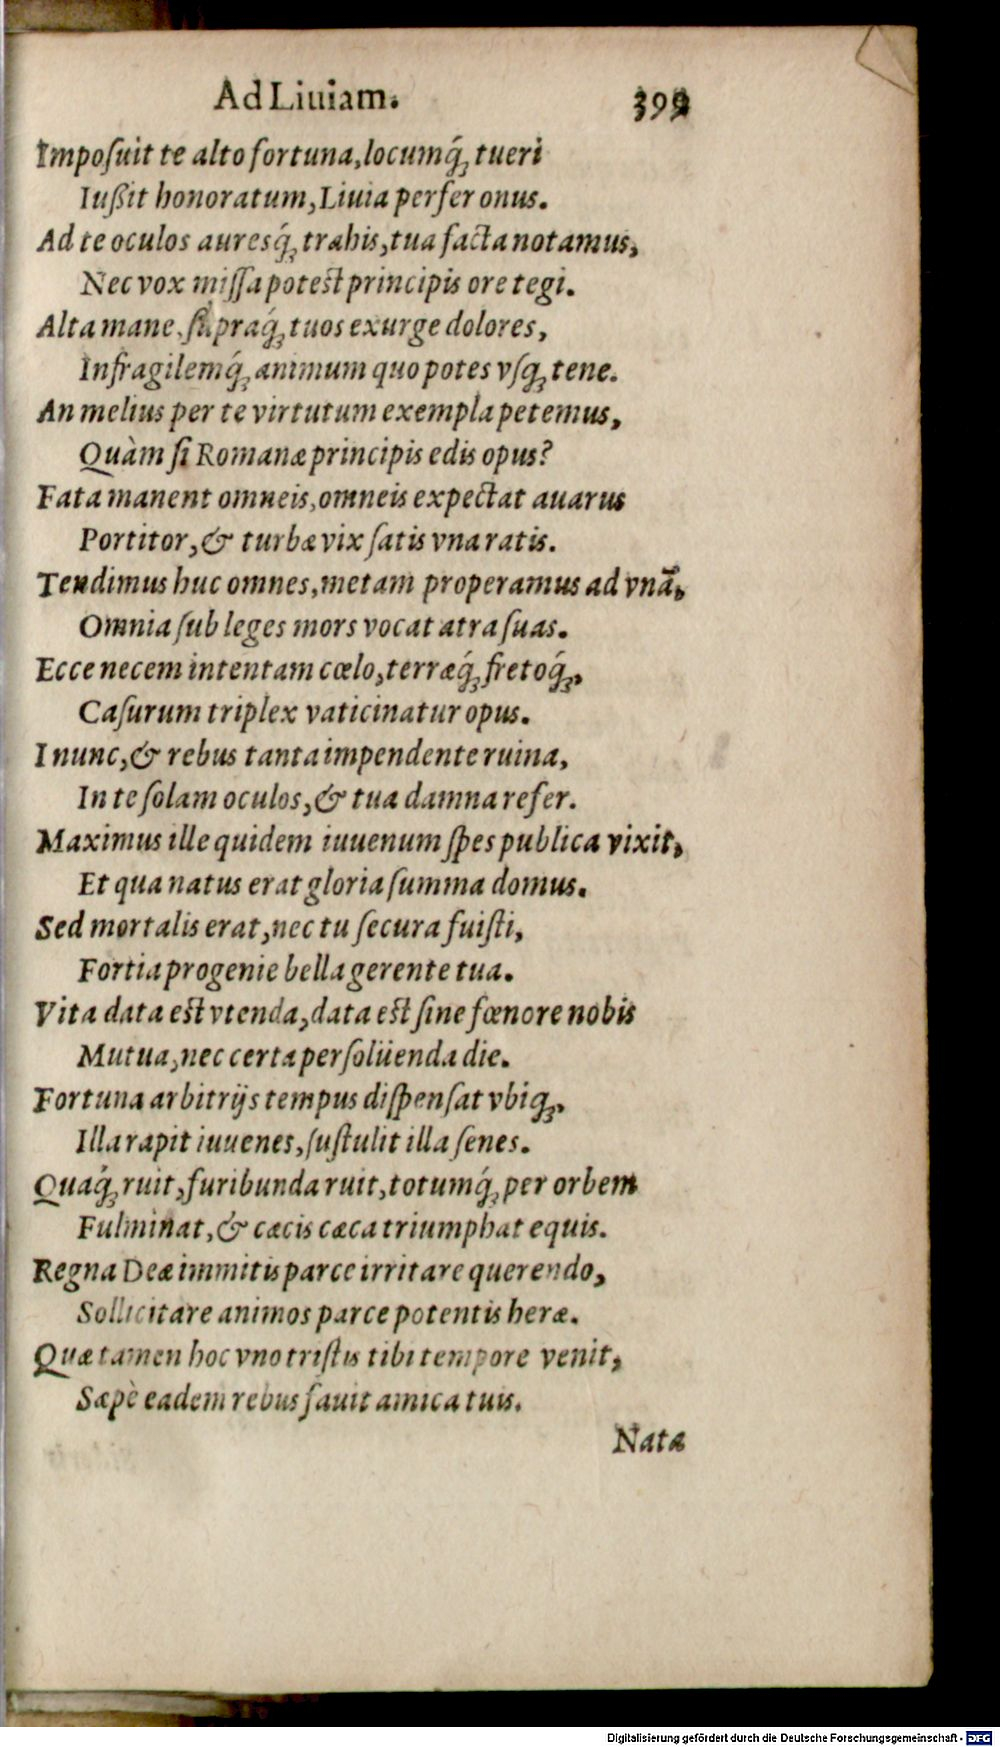 Ad Liuiam. 399
Imposuit te alto fortuna, locumq́; tueri
Iußit honoratum, Liuia perfer onus.
Ad te oculos auresq́; trahis, tua facta notamus,
Nec vox missa potest principis ore tegi.
Alta mane, supraq́; tuos exurge dolores,
Infragilemq́; animum quo potes vsq; tene.
An melius per te virtutum exempla petemus,
Quàm si Romanæ principis edis opus?
Fata manent omneis, omneis expectat auarus
Portitor, & turbæ vix satis vna ratis.
Tendimus huc omnes, metam properamus ad vnã,
Omnia sub leges mors vocat atra suas.
Ecce necem intentam cœlo, terræq́; fretoq́;,
Casurum triplex vaticinatur opus.
I nunc, & rebus tanta impendente ruina,
In te solam oculos, & tua damna refer.
Maximus ille quidem iuuenum spes publica vixit,
Et qua natus erat gloria summa domus.
Sed mortalis erat, nec tu secura fuisti,
Fortia progenie bella gerente tua.
Vita data est vtenda, data est sine fœnore nobis
Mutua, nec certa persolüenda die.
Fortuna arbitrijs tempus dispensat vbiq;,
Illa rapit iuuenes, sustulit illa senes.
Quaq́; ruit, furibunda ruit, totumq́; per orbem
Fulminat, & cæcis cæca triumphat equis.
Regna Deæ immitis parce irritare querendo,
Sollicitare animos parce potentis heræ.
Quæ tamen hoc vno tristis tibi tempore venit,
Sæpè eadem rebus fauit amica tuis.
Nata
Digitalisierung gefördert durch die Deutsche Forschungsgemeinschaft - DFG